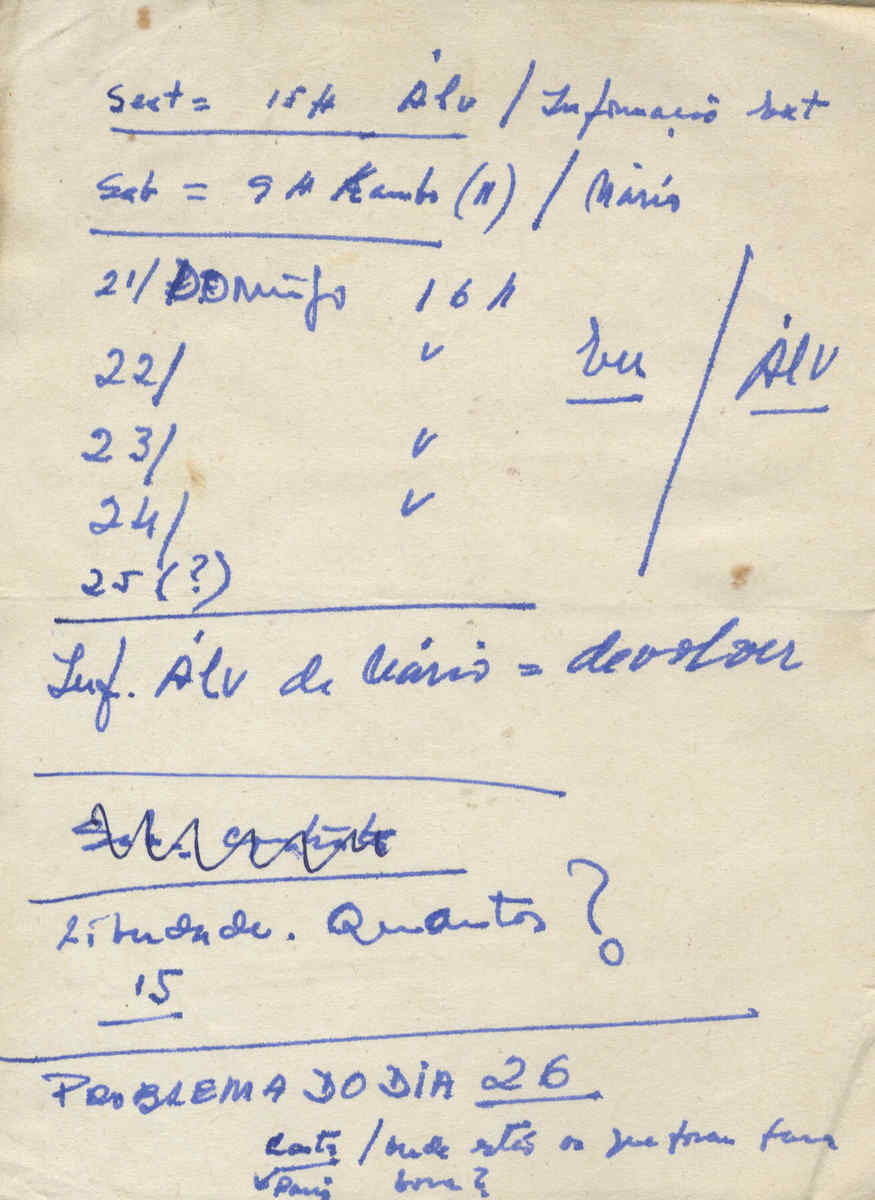 Sext = 15 H Álv / Informação Ext
Sab = 9 H (H) / Mário
21/ DOMingo 16 h
22/ v Ver / ÁLV
23/ v
24/ v
25 (?)
Inf. ÁLV de Mário = devolver
Liberdade. Quantos?
15
PROBLEMA DO DIA 26
/ onde estão os que foram para
Paris fora?